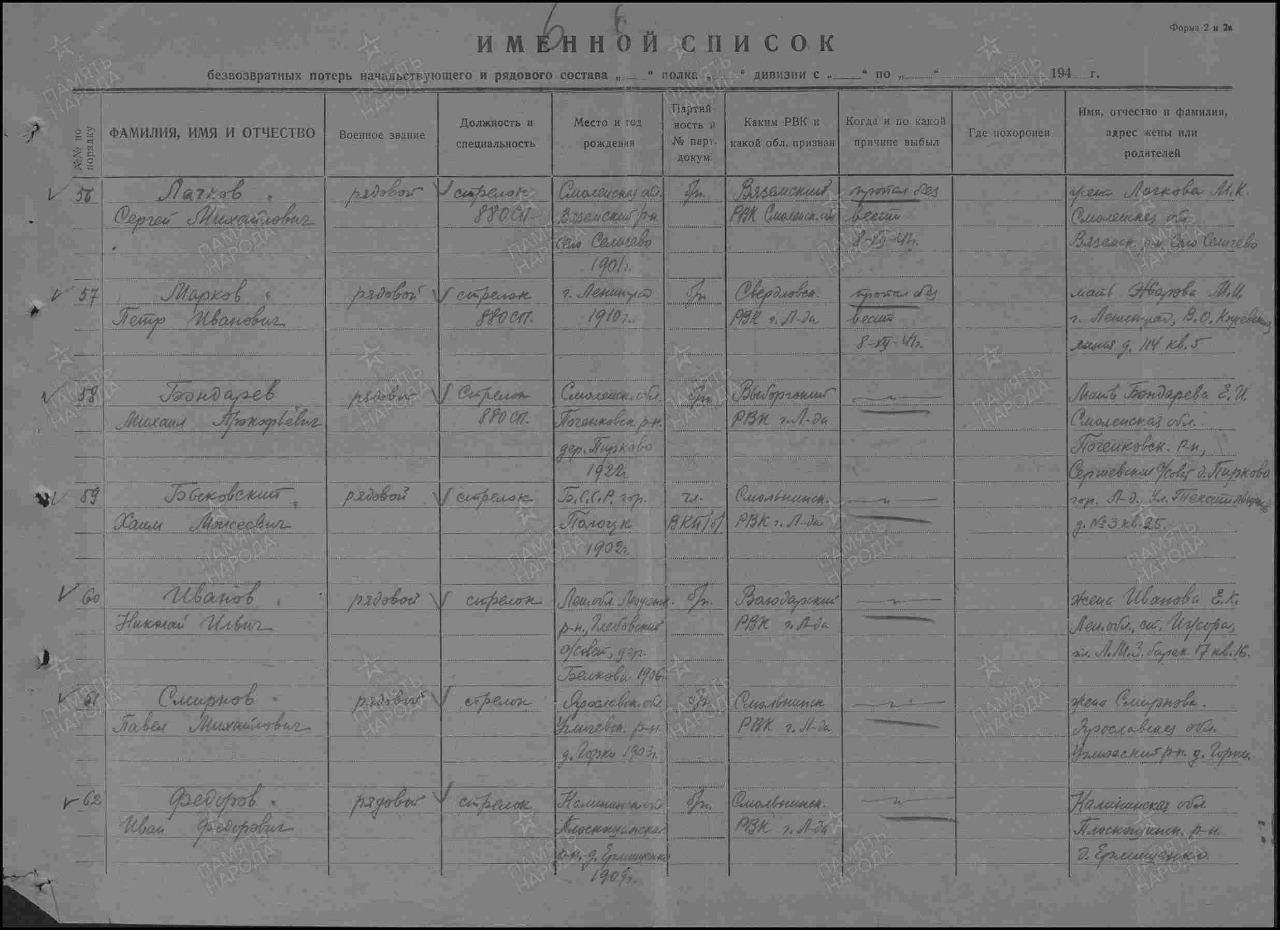 Форма 2 и 2а
6
ИМЕННОЙ СПИСОК
безвозвратных потерь начальствующего и рядового состава „ “ полка „ “ дивизии с „ “ по „ “ 194 г.
№№ по порядку
ФАМИЛИЯ, ИМЯ И ОТЧЕСТВО
Военное звание
Должность и специальность
Место и год рождения
Партийность и № парт. докум.
Каким РВК и какой обл. призван
Когда и по какой причине выбыл
Где похоронен
Имя, отчество и фамилия, адрес жены или родителей
56 рядовой стрелок Смоленская обл. бп. Вяземский пропал без жена М.К.
Сергей Михайлович 880СП. Вяземский р-н РВК Смоленской вести Смоленская обл.
село 8-XII-41г. Вяземск. р-н село
1901г.
57 Марков рядовой стрелок г. Ленинград бп. Свердловск. пропал без мать М.И.
Петр Иванович 880СП. 1910г. РВК г. Л-да вести г. Ленинград, В.О.
8-XII-41г. линия д. 114 кв. 5
58 Бондарев рядовой стрелок Смоленск. обл. бп. Выборгский —"— Мать Бондарева Е.И.
Михаил Прокофьевич 880СП. р-н. РВК г. Л-да Смоленская обл.
дер. р-н,
1922г. Сергиевский с/совет д.
59 Быковский рядовой стрелок Б.С.С.Р. гор. чл. Смольнинск. —"— гор. Л-д, ул.
Хаим Моисеевич Полоцк ВКП/б/ РВК г. Л-да д. №3 кв. 25.
1902г.
60 Иванов рядовой стрелок Лен. обл. бп. Володарский —"— жена Иванова Е.К.
Николай Ильич р-н, Глебовский РВК г. Л-да Лен. обл., ст. Ижора,
с/совет, дер. барак 17 кв. 16.
Белкова 1906г.
61 Смирнов рядовой стрелок Ярославск. обл. бп. Смольнинск —"— жена Смирнова.
Павел Михайлович Угличск. р-н РВК г. Л-да Ярославская обл.
д. Горки 1903г. Угличский р-н. д. Горки.
62 Федоров рядовой стрелок Калининской бп. Смольнинск. —"— Калининская обл.
Иван Федорович Плоскошинск. РВК г. Л-да Плоскошинск. р-н.
р-н. д. д.
ПАМЯТЬ НАРОДА